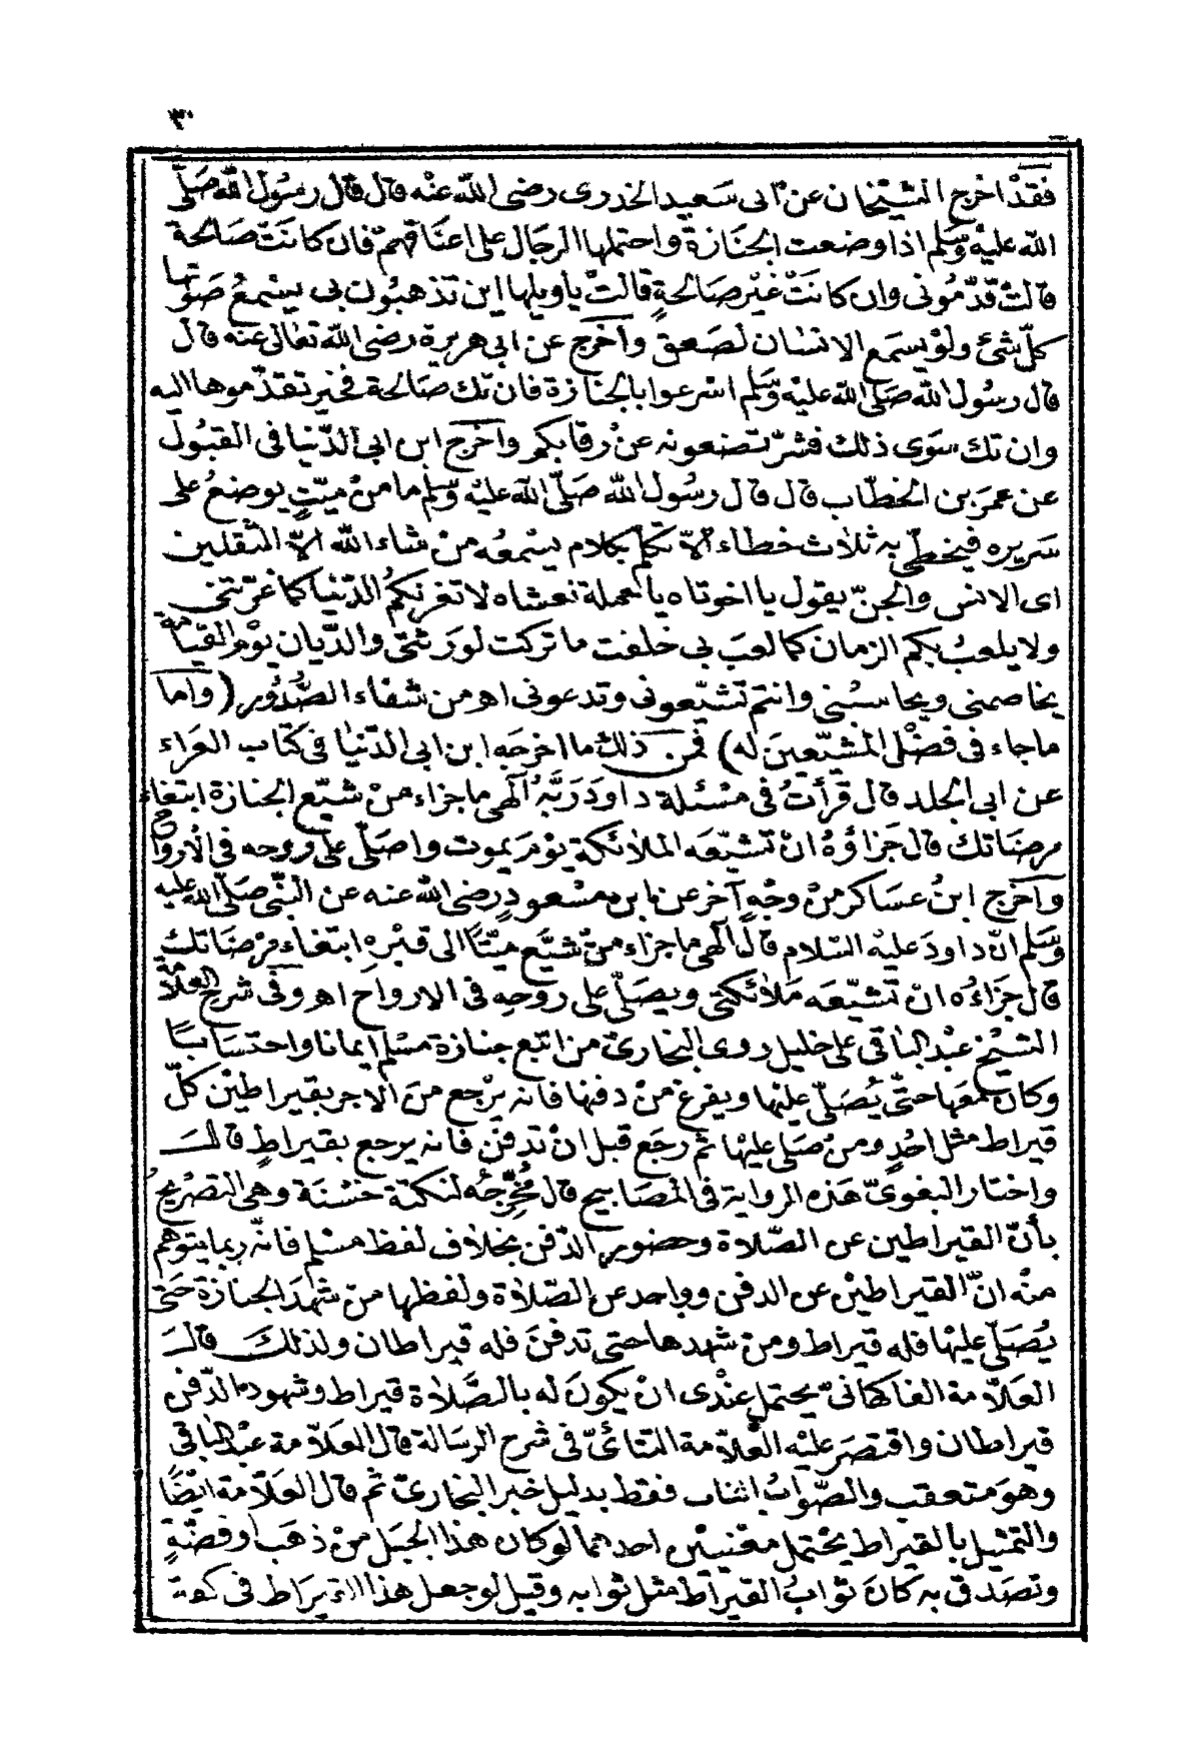 ٣٠
فقد اخرج الشيخان عن ابى سعيد الخدرى رضى الله عنه قال قال رسول الله صلى
الله عليه وسلم اذا وضعت الجنازة واحتملها الرجال على اعناقهم فان كانت صالحة
قالت قدمونى وان كانت غير صالحة قالت ياويلها اين تذهبون بى يسمع صوتها
كل شئ ولو يسمع الانسان لصعق واخرج عن ابى هريرة رضى الله تعالى عنه قال
قال رسول الله صلى الله عليه وسلم اسرعوا بالجنازة فان تك صالحة فخير تقدموها اليه
وان تك سوى ذلك فشر تضعونه عن رقابكم واخرج ابن ابى الدنيا فى القبول
عن عمر بن الخطاب قال قال رسول الله صلى الله عليه وسلم ما من ميت يوضع على
سريره فيخطى به ثلاث خطاء الا تكلم بكلام يسمعه من شاء الله الا الثقلين
اى الانس والجن يقول يا اخوتاه يا حملة نعشاه لا تغرنكم الدنيا كما غرتنى
ولا يلعب بكم الزمان كما لعب بى خلفت ما تركت لورثتى والديان يوم القيامة
يخاصمنى ويحاسبنى وانتم تشيعونى وتدعونى اهر من شفاء الصدور (واما
ماجاء فى فضل المشيعين له) فمن ذلك ما اخرجه ابن ابى الدنيا فى كتاب العزاء
عن ابى الجلد قال قرأت فى مسئلة داود ربه الهى ما جزاء من شيع الجنازة ابتغاء
مرضاتك قال جزاؤه ان تشيعه الملائكة يوم يموت واصلى على روحه فى الارواح
واخرج ابن عساكر من وجه آخر عن ابن مسعود رضى الله عنه عن النبى صلى الله عليه
وسلم ان داود عليه السلام قال الهى ما جزاء من شيع ميتا الى قبره ابتغاء مرضاتك
قال جزاءه ان تشيعه ملائكتى ويصلى على روحه فى الارواح اهر وفى شرح العلامة
الشيخ عبد الباقى على خليل روى البخارى من اتبع جنازة مسلم ايمانا واحتسابا
وكان معها حتى يصلى عليها ويفرغ من دفنها فانه يرجع من الاجر بقيراطين كل
قيراط مثل احد ومن صلى عليها ثم رجع قبل ان تدفن فانه يرجع بقيراط قال
واختار البغوى هذه الرواية فى المصابيح قال مخرجه لنكتة حسنة وهى التصريح
بأن القيراطين عن الصلاة وحضور الدفن بخلاف لفظ مسلم فانه ربما يتوهم
منه ان القيراطين عن الدفن وواحد عن الصلاة ولفظها من شهد الجنازة حتى
يصلى عليها فله قيراط ومن شهدها حتى تدفن فله قيراطان ولذلك قال
العلامة الفاكهانى يحتمل عندى ان يكون له بالصلاة قيراط وشهود الدفن
قيراطان واقتصر عليه العلامة التتائى فى شرح الرسالة قال العلامة عبد الباقى
وهو متعقب والصواب اثنان فقط بدليل خبر البخارى ثم قال العلامة ايضا
والتمثيل بالقيراط يحتمل معنيين احدهما لو كان هذا الجبل من ذهب او فضة
وتصدق به كان ثواب القيراط مثل ثوابه وقيل لو جعل هذا القيراط فى كفة